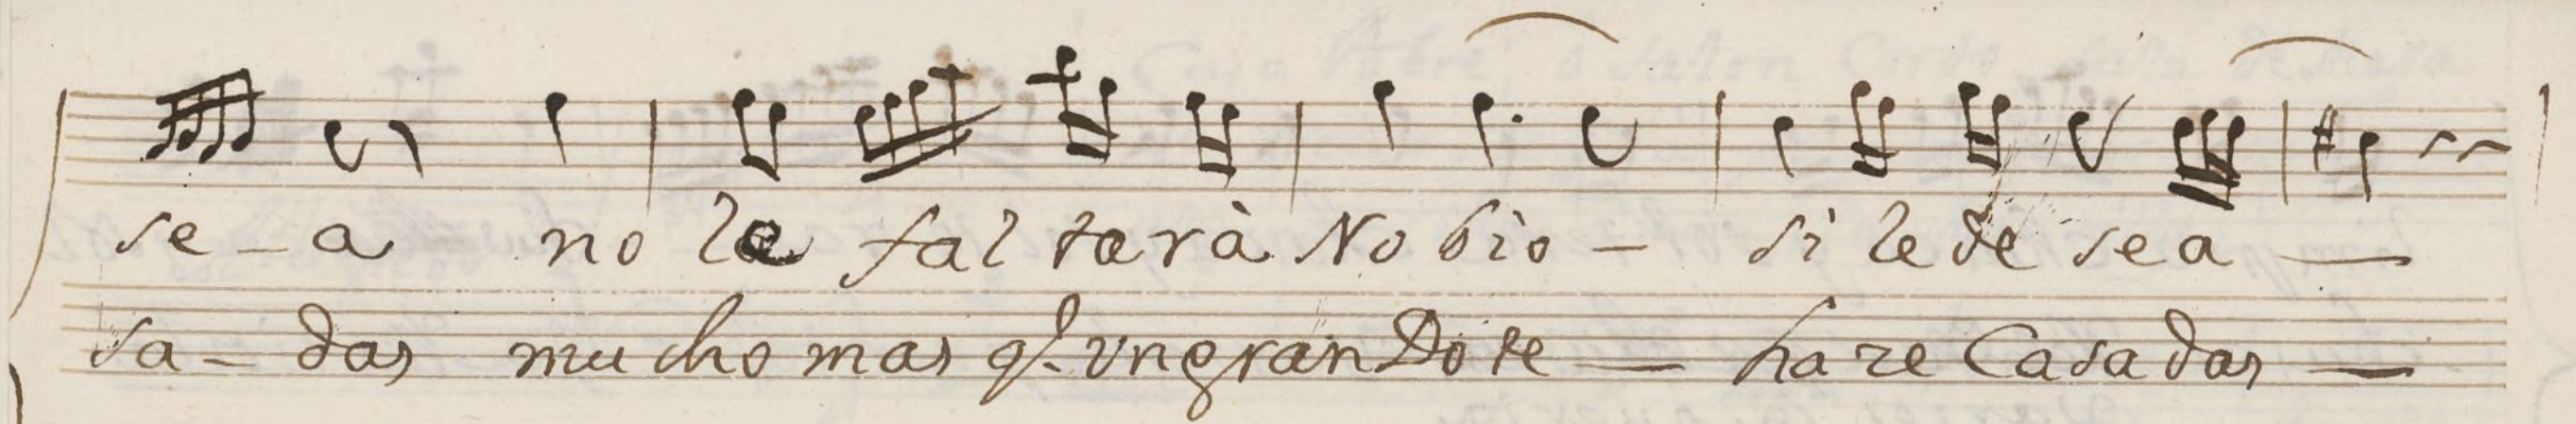 se - a no le fal ta rà No bio - si le de se a -
sa - das mu cho mas q.e un gran Do te - ha ze Casa das -